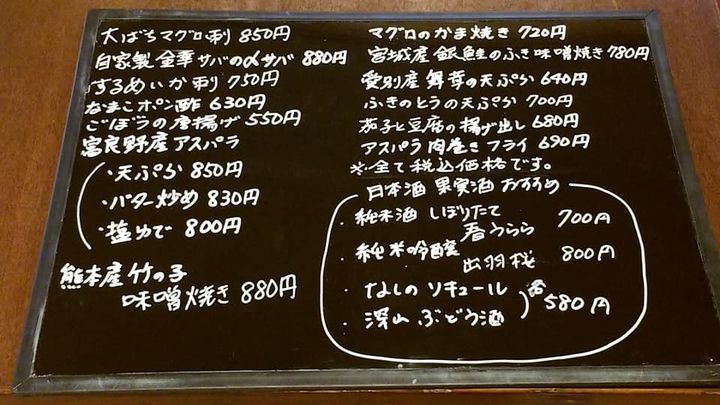 大ばちマグロ刺 850円
自家製 金華サバの〆サバ 880円
するめいか刺 750円
なまこポン酢 630円
ごぼうの唐揚げ 550円
富良野産アスパラ
・天ぷら 850円
・バター炒め 830円
・塩ゆで 800円
熊本産 竹の子
味噌焼き 880円
マグロのかま焼き 720円
宮城産 銀鮭のふき味噌焼き 780円
愛別産 舞茸の天ぷら 640円
ふきのとうの天ぷら 700円
茄子と豆腐の揚げ出し 680円
アスパラ肉巻きフライ 690円
※全て税込価格です。
日本酒 果実酒 おすすめ
・純米酒 しぼりたて
春うらら 700円
・純米吟醸
出羽桜 800円
・なしのリキュール
・深山ぶどう酒
各580円